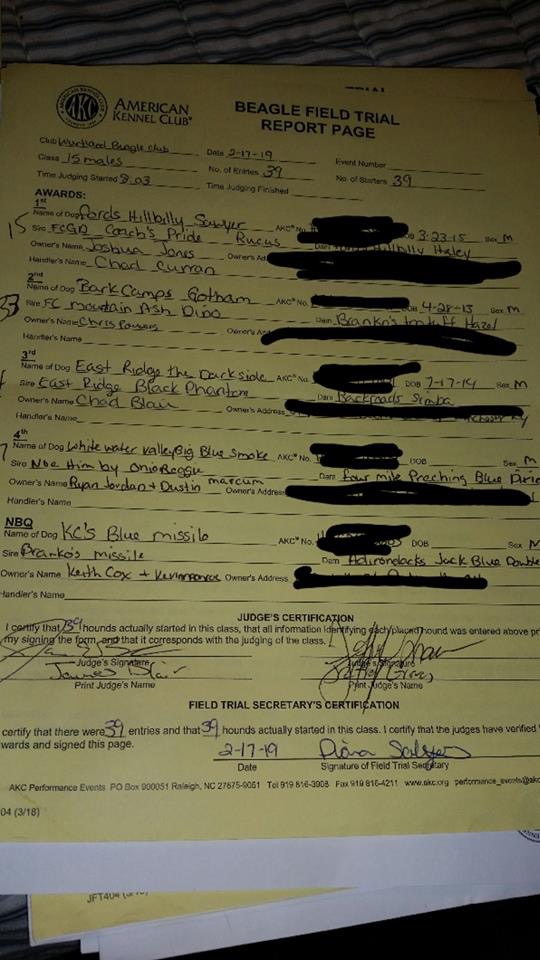 AMERICAN KENNEL CLUB
AKC
AMERICAN
KENNEL CLUB®
BEAGLE FIELD TRIAL
REPORT PAGE
Club Wurtland Beagle club Date 2-17-19 Event Number
Class 15 males No. of Entries 39 No. of Starters 39
Time Judging Started 8:03 Time Judging Finished
AWARDS:
1st
15 Name of Dog Fords Hillbilly Sawyer AKC® No. DOB 3-23-15 Sex M
Sire FCGD Coach's Pride Rucus Dam Hillbilly Haley
Owner's Name Joshua Jones Owner's Ad
Handler's Name Chad Curran
2nd
Name of Dog Bark Camps Gotham AKC® No. DOB 4-28-13 Sex M
Sire FC Mountain Ash Dino Dam Branko's Hazel
Owner's Name Chris Owner's
Handler's Name
3rd
Name of Dog East Ridge the Darkside AKC® No. DOB 7-17-14 Sex M
Sire East Ridge Black Phantom Dam Backroads Simba
Owner's Name Chad Blair Owner's Address
Handler's Name
4th
Name of Dog White water Valley Big Blue Smoke AKC® No. DOB Sex M
Sire Noe Him by Onio Reggie Dam four mile Preaching Blue
Owner's Name Ryan Jordan + Dustin marcum Owner's Address
Handler's Name
NBQ
Name of Dog KC's Blue missile AKC® No. DOB Sex M
Sire Branko's missile Dam Adirondacks Jack Blue Double
Owner's Name Keith Cox + Owner's Address
Handler's Name
JUDGE'S CERTIFICATION
I certify that 39 hounds actually started in this class, that all information identifying each placed hound was entered above pri
my signing the form, and that it corresponds with the judging of the class.
Judge's Signature Judge's Signature
James Blair
Print Judge's Name Print Judge's Name
FIELD TRIAL SECRETARY'S CERTIFICATION
certify that there were 39 entries and that 39 hounds actually started in this class. I certify that the judges have verified
wards and signed this page.
2-17-19 Diana Salyers
Date Signature of Field Trial Secretary
AKC Performance Events PO Box 900051 Raleigh, NC 27675-9051 Tel 919 816-3908 Fax 919 816-4211 www.akc.org performance_events@akc
04 (3/18)
JFT404